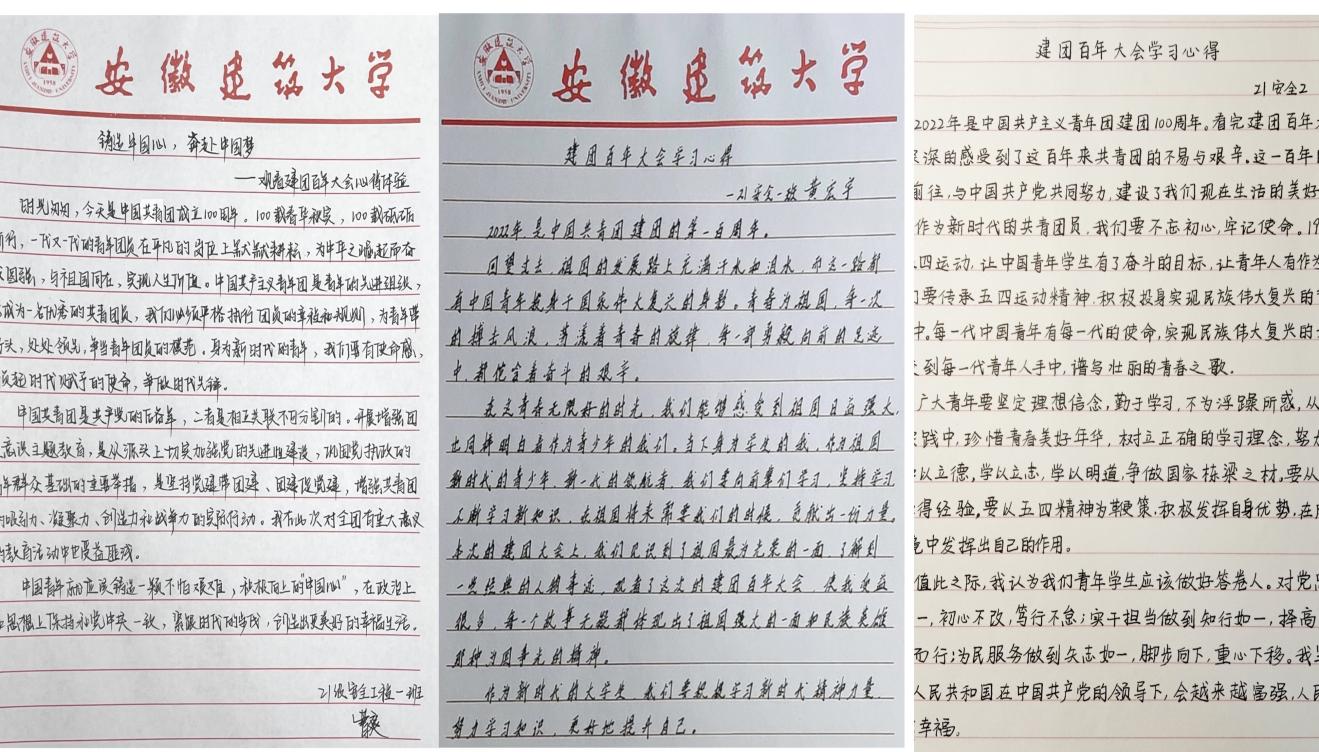 安徽建筑大学
铸造中国心，奔赴中国梦
——观看建团百年大会心得体验
时光匆匆，今天是中国共青团成立100周年。100载春华秋实，100载砥砺
前行，一代又一代的青年团员在平凡的岗位上默默耕耘，为中华之崛起而奋
国强，与祖国同在，实现人生价值。中国共产主义青年团是青年的先进组织，
成为一名优秀的共青团员，我们必须严格执行团员的章程和规则，为青年带
头，处处领先，争当青年团员的模范。身为新时代的青年，我们要有使命感，
负起时代赋予的使命，争做时代先锋。
中国共青团是共产党的后备军，二者是相互关联不可分割的。开展增强团
意识主题教育，是从源头上切实加强党的先进性建设，巩固党执政的
年群众基础的重要举措，是坚持党建带团建、团建促党建，增强共青团
的吸引力、凝聚力、创造力和战斗力的实际行动。我在此次对全团有重大意义
的教育活动中也受益匪浅。
中国青年都应该铸造一颗不怕艰难，积极向上的“中国心”，在政治上
思想上保持和党中央一致，紧跟时代的步伐，创造出更美好的幸福生活。
21级安全工程一班
安徽建筑大学
建团百年大会学习心得
—21安全一班 黄宏宇
2022年是中国共青团建团的第一百周年。
回望过去，祖国的发展路上充满汗水和泪水，而这一路都
有中国青年投身于国家伟大复兴的身影。青春为祖国，每一次
的搏击风浪，荡漾着青春的旋律，每一部勇毅向前的足迹
中，都饱含着奋斗的艰辛。
在这青春无限好的时光，我们能够感受到祖国日益强大，
也同样明白着作为青少年的我们。当下身为学生的我，作为祖国
新时代的青少年，新一代的领航者，我们要向前辈们学习，坚持学习
不断学习新知识，在祖国将来需要我们的时候，贡献出一份力量。
本次的建团大会上，我们见识到了祖国最为光荣的一面，了解到
一些经典的人物事迹，观看了这次的建团百年大会，使我受益
很多，每一个故事无疑都体现出了祖国强大的一面和民族英雄
那种为国争光的精神。
作为新时代的大学生，我们要积极学习新时代精神力量，
努力学习知识，更好地提升自己。
建团百年大会学习心得
21安全2
2022年是中国共产主义青年团建团100周年。看完建团百年大
深的感受到了这百年来共青团的不易与艰辛。这一百年
前往，与中国共产党共同努力，建设了我们现在生活的美好
作为新时代的共青团员，我们要不忘初心，牢记使命。19
四运动，让中国青年学生有了奋斗的目标，让青年人有作为
要传承五四运动精神，积极投身实现民族伟大复兴的
中。每一代中国青年有每一代的使命，实现民族伟大复兴的
到每一代青年人手中，谱写壮丽的青春之歌。
广大青年要坚定理想信念，勤于学习，不为浮躁所惑，从
践中，珍惜青春美好年华，树立正确的学习理念，努力
以立德，学以立志，学以明道，争做国家栋梁之材，要从
得经验，要以五四精神为鞭策，积极发挥自身优势，在
中发挥出自己的作用。
值此之际，我认为我们青年学生应该做好答卷人。对党忠
一，初心不改，笃行不怠；实干担当做到知行如一，择高
而行；为民服务做到矢志如一，脚步向下，重心下移。我
人民共和国在中国共产党的领导下，会越来越富强，人民
幸福。